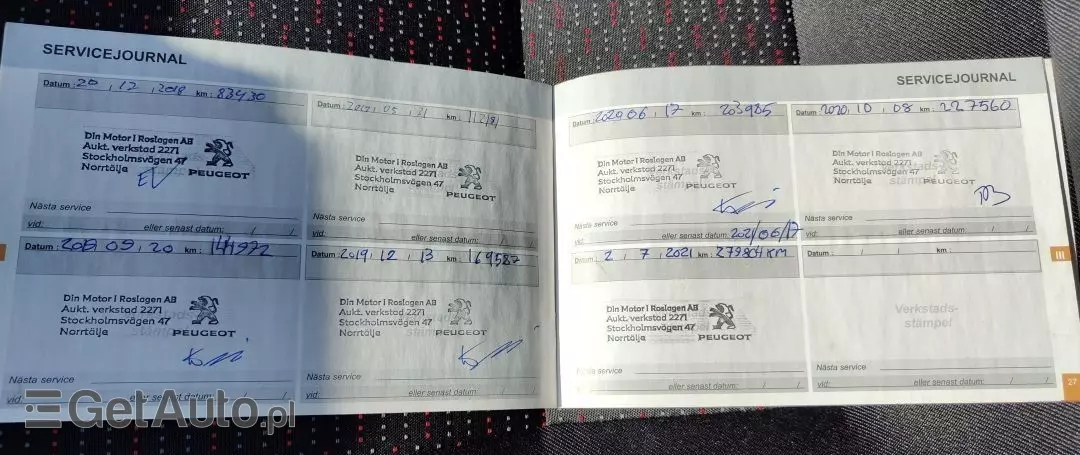 SERVICEJOURNAL
Datum : 20 , 12 , 2018 km : 83430
Din Motor i Roslagen AB
Aukt. verkstad 2271
Stockholmsvägen 47
Norrtälje
PEUGEOT
Nästa service
vid: eller senast datum: / /
Datum : 2019, 05 , 21 km :
Din Motor i Roslagen AB
Aukt. verkstad 2271
Stockholmsvägen 47
Norrtälje
PEUGEOT
Nästa service
vid: eller senast datum: / /
Datum : 2019 09 , 20 km : 141972
Din Motor i Roslagen AB
Aukt. verkstad 2271
Stockholmsvägen 47
Norrtälje
PEUGEOT
Nästa service
vid: eller senast datum: / /
Datum : 2019 , 12 , 13 km : 169587
Din Motor i Roslagen AB
Aukt. verkstad 2271
Stockholmsvägen 47
Norrtälje
PEUGEOT
Nästa service
vid: eller senast datum: / /
SERVICEJOURNAL
Datum : 2020 06 , 17 km : 203985
Din Motor i Roslagen AB
Aukt. verkstad 2271
Stockholmsvägen 47
Norrtälje
PEUGEOT
Nästa service
vid: eller senast datum: 2021/06/17
Datum : 2020, 10 , 08 km : 227560
Din Motor i Roslagen AB
Aukt. verkstad 2271
Stockholmsvägen 47
Norrtälje
PEUGEOT
Nästa service
vid: eller senast datum: / /
Datum : 2 , 7 , 2021 km : 279801 KM
Din Motor i Roslagen AB
Aukt. verkstad 2271
Stockholmsvägen 47
Norrtälje
PEUGEOT
Nästa service
vid: eller senast datum: / /
Datum : / / km :
Verkstads-
stämpel
Nästa service
vid: eller senast datum: / /
III
27
GetAuto.pl